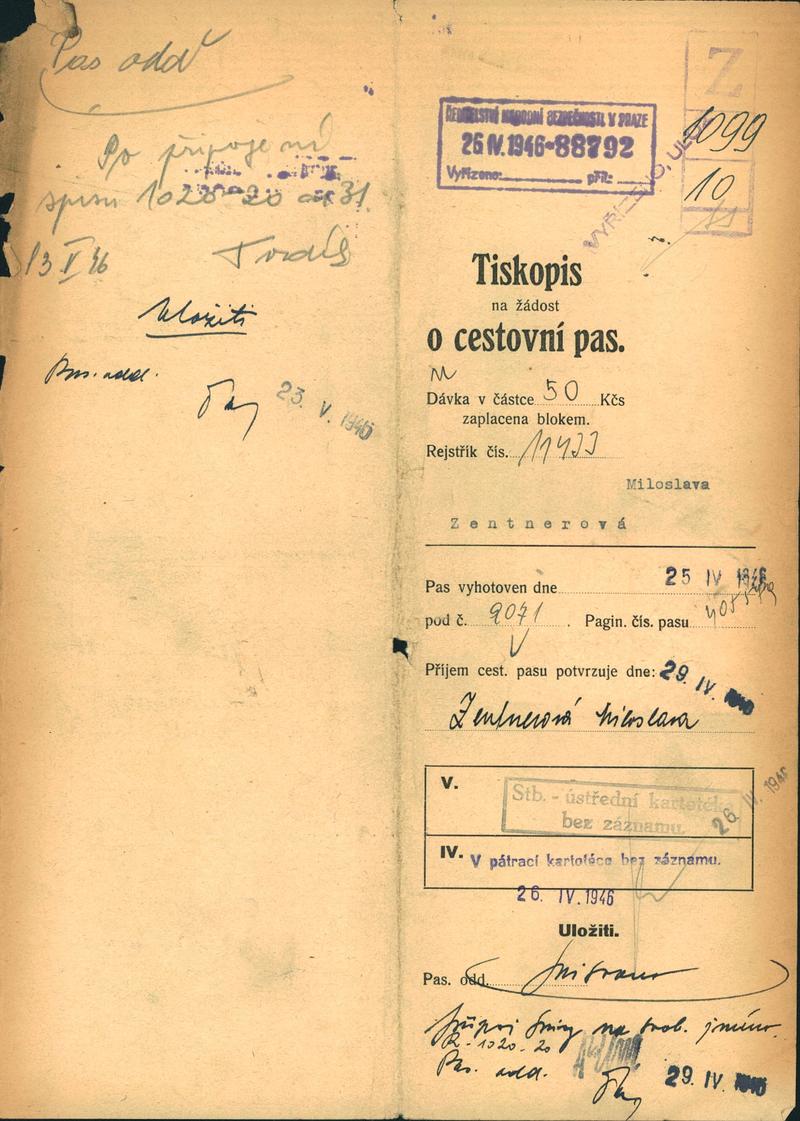 Pas odd
Po připojení
spisu 1020-20 od 31.
13 V 46
Uložiti
Pas. odd.
23. V. 1946
Z
1099
10
ŘEDITELSTVÍ NÁRODNÍ BEZPEČNOSTI V PRAZE
26 IV. 1946-88792
Vyřízeno: příl:
VYŘÍZENO, ULOŽ
Tiskopis
na žádost
o cestovní pas.
Dávka v částce 50 Kčs
zaplacena blokem.
Rejstřík čís. 11433
Miloslava
Zentnerová
Pas vyhotoven dne 25 IV 1946
pod č. 2071. Pagin. čís. pasu
Příjem cest. pasu potvrzuje dne: 29. IV. 1946
Zentnerová Miloslava
V. Stb. - ústřední kartotéka
bez záznamu.
26. IV. 1946
IV. V pátrací kartotéce bez záznamu.
26. IV. 1946
Uložiti.
Pas. odd.
na svob. jméno.
R-1020-20
Pas. odd.
29. IV. 1946